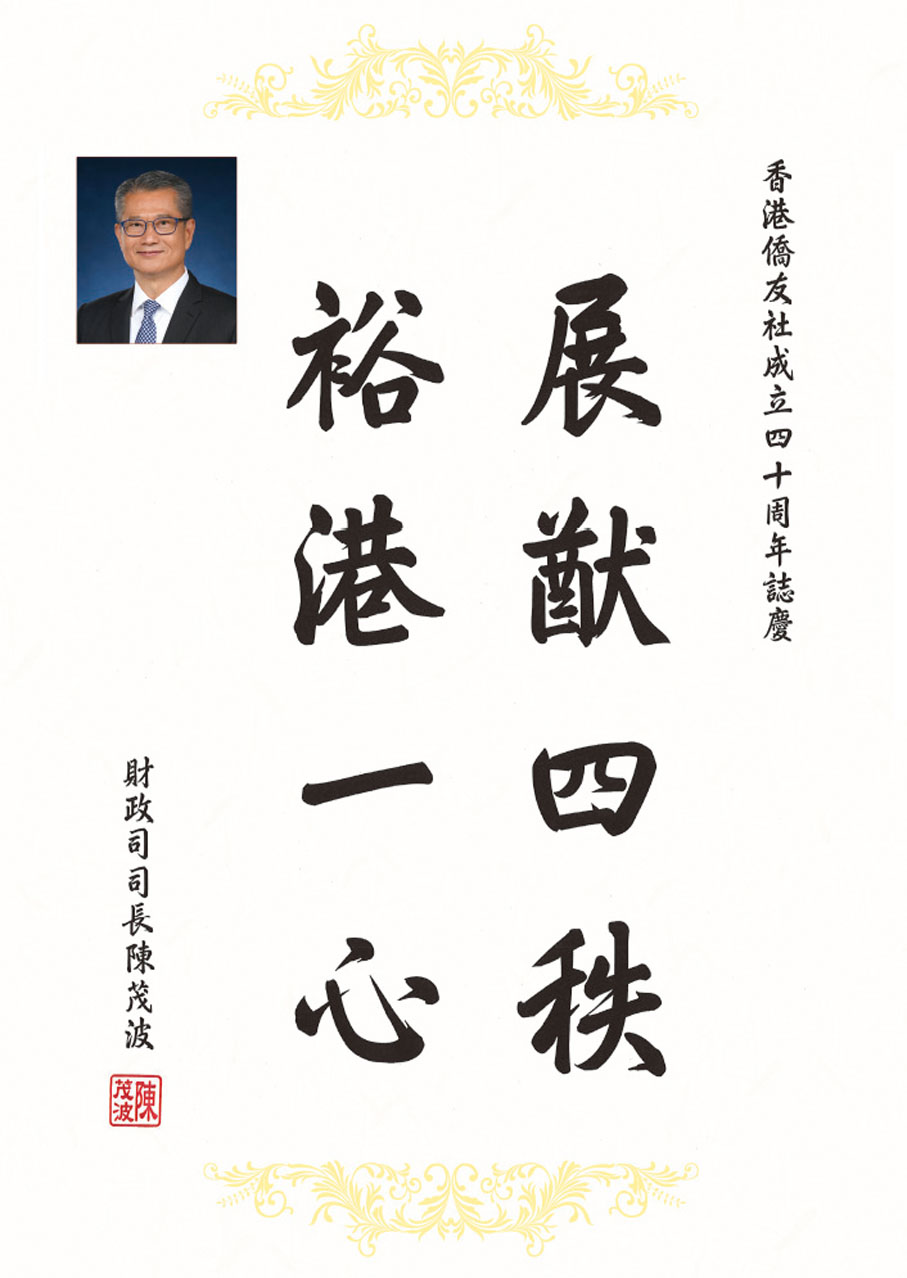 香港僑友社成立四十周年誌慶
展猷四秩
裕港一心
財政司司長陳茂波
陳茂波